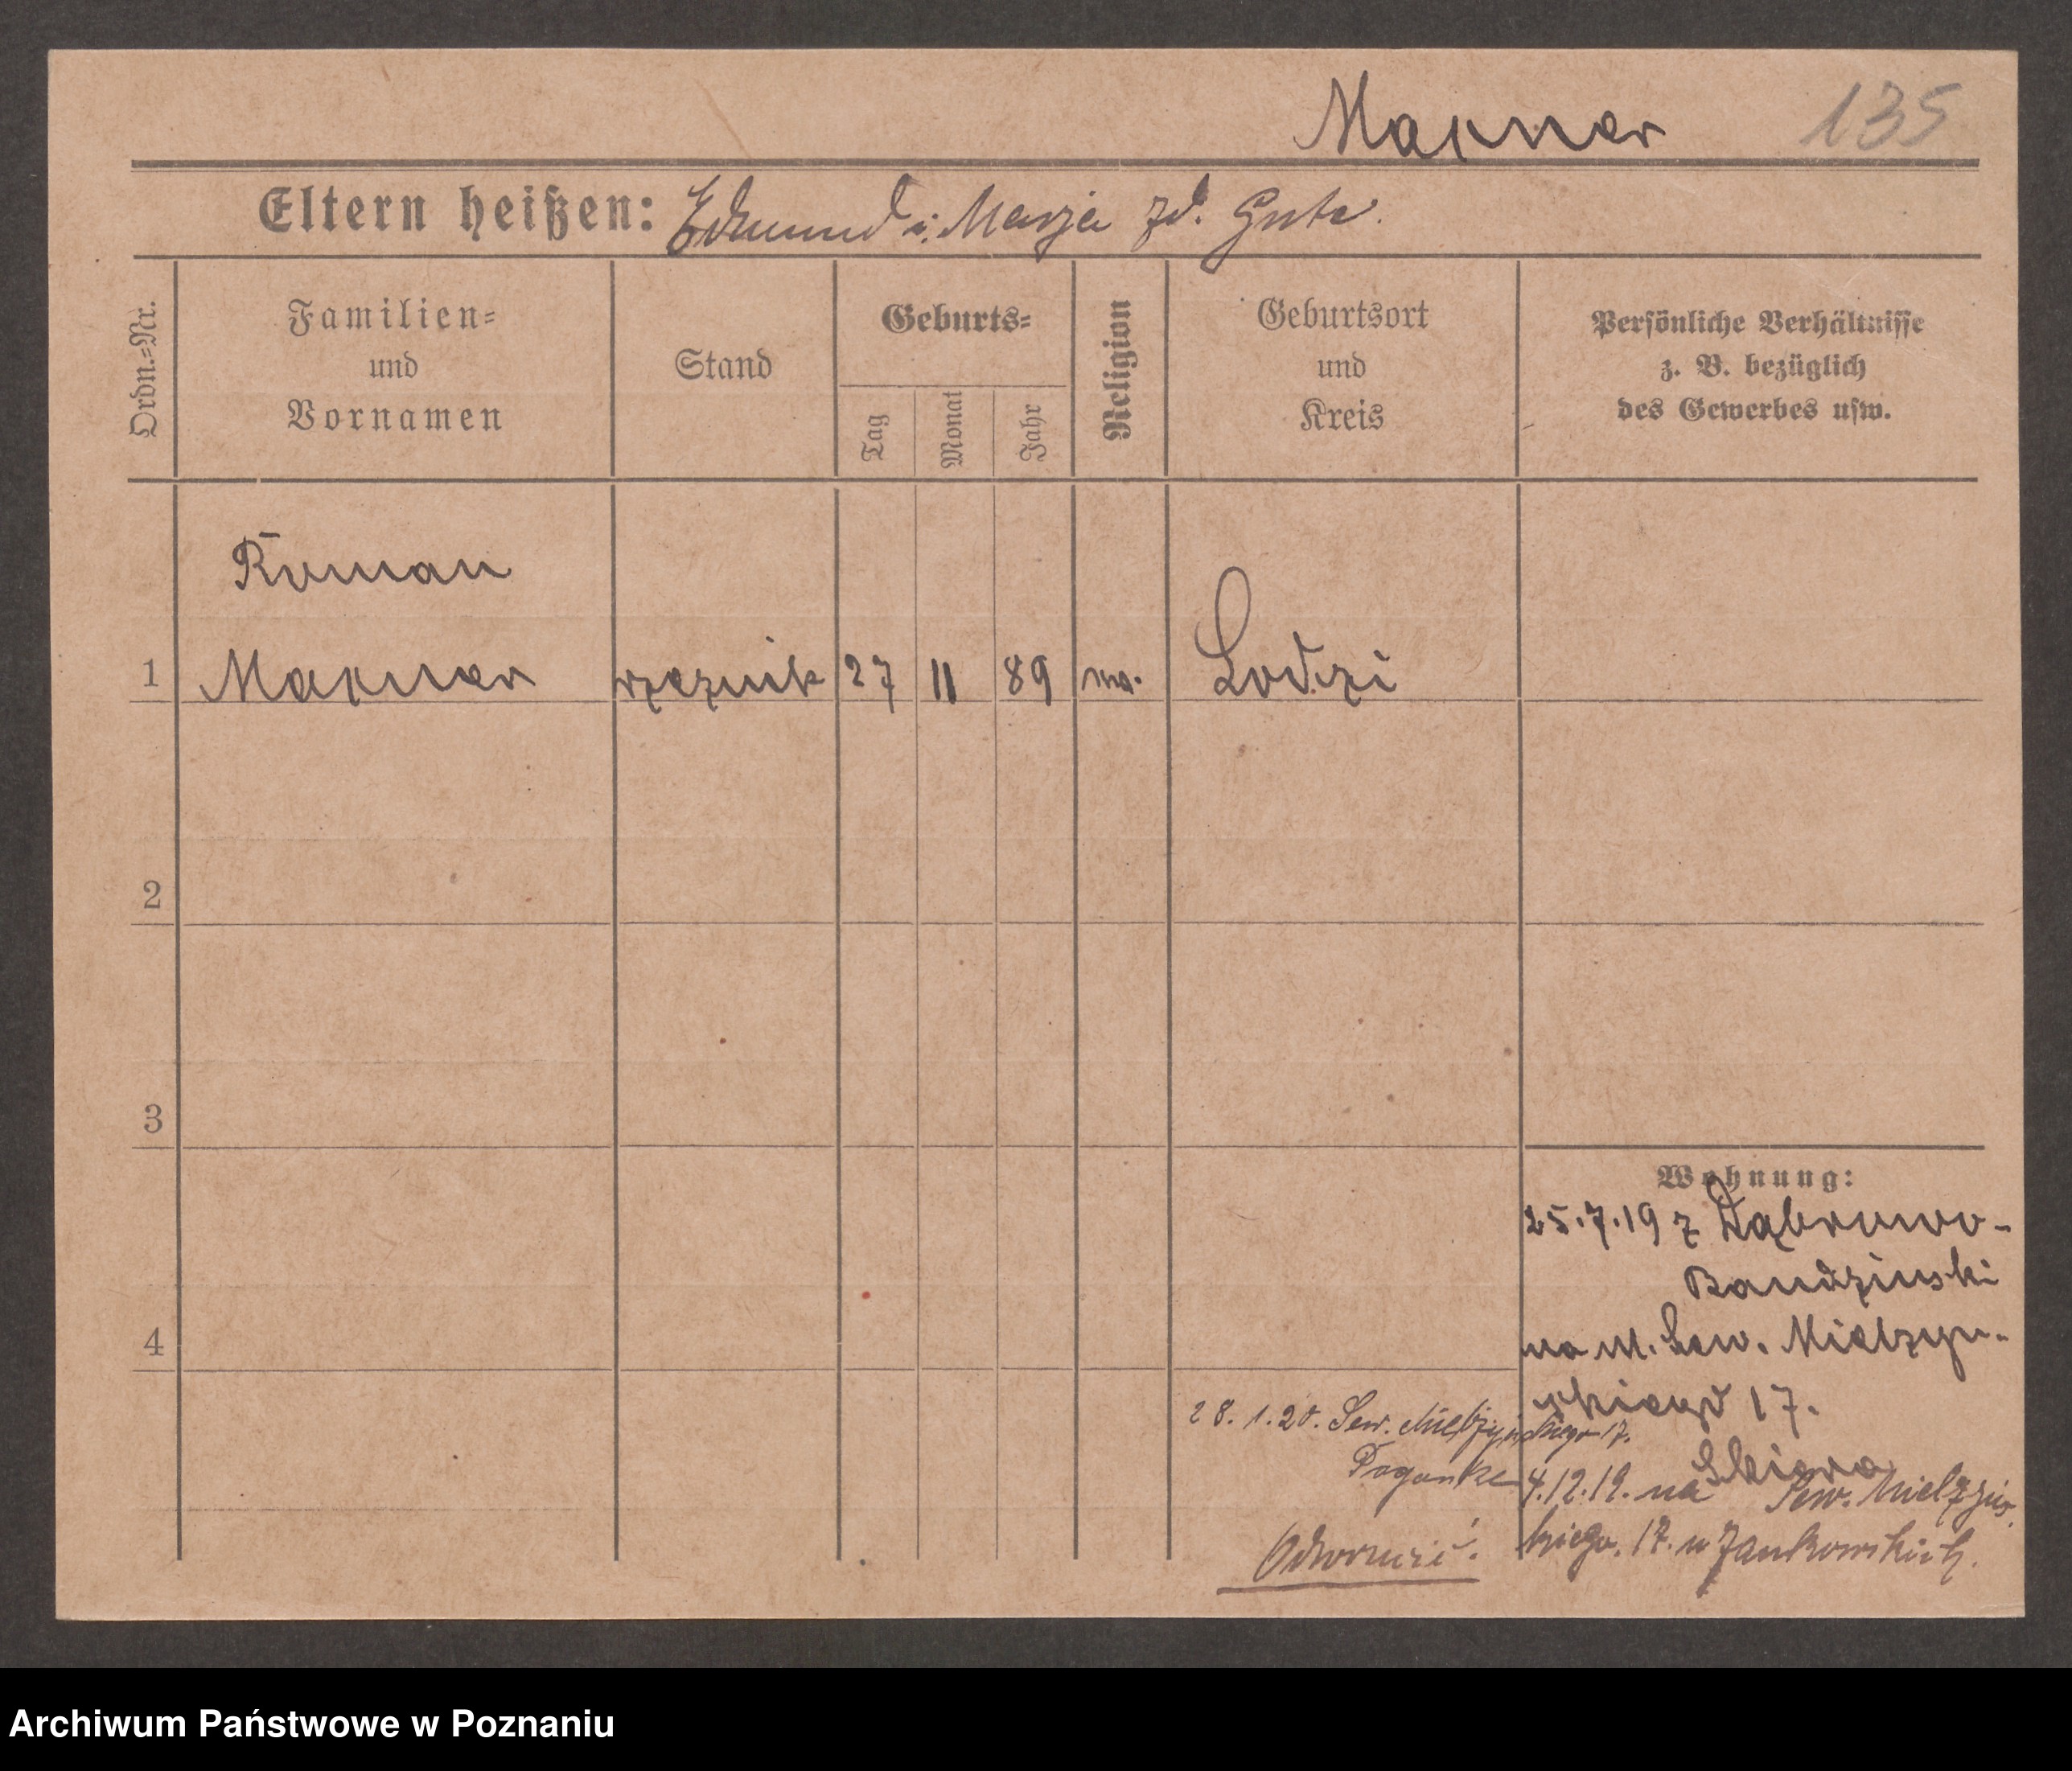 Maxner 135
Eltern heißen: Edmund i Marja zd. Gute.
Ordn.-Nr.
Familien-
und
Vornamen
Stand
Geburts-
Tag
Monat
Jahr
Religion
Geburtsort
und
Kreis
Persönliche Verhältnisse
z. B. bezüglich
des Gewerbes usw.
Roman
1 Maxner rzeznik 27 11 89 Lodzi
2
3
Wohnung:
25.7.19 z Dąbrowo-
Bandzinski
na Sew. Mielzyn-
skiego 17.
4
28.1.20. Sew. Mielżyńskiego 17.
Skiera
4.12.19. na Sew. Mielżyńs
kiego. 17. u Jankowskich.
Odwrócić!
Archiwum Państwowe w Poznaniu